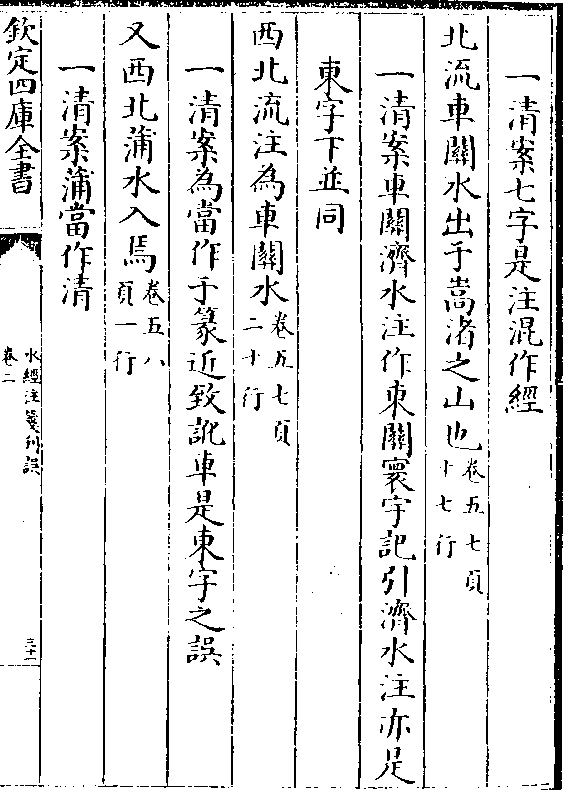 一清案七字是注混作經
北流車關水出于嵩渚之山也卷五七頁十七行
一清案車關濟水注作東關寰宇記引濟水注亦是
東字下並同
西北流注為車關水卷五七頁二十行
一清案為當作于篆近致訛車是東字之誤
又西北蒲水入焉卷五八頁一行
一清案蒲當作清
欽定四庫全書
水經注箋刋誤
卷二
三十一